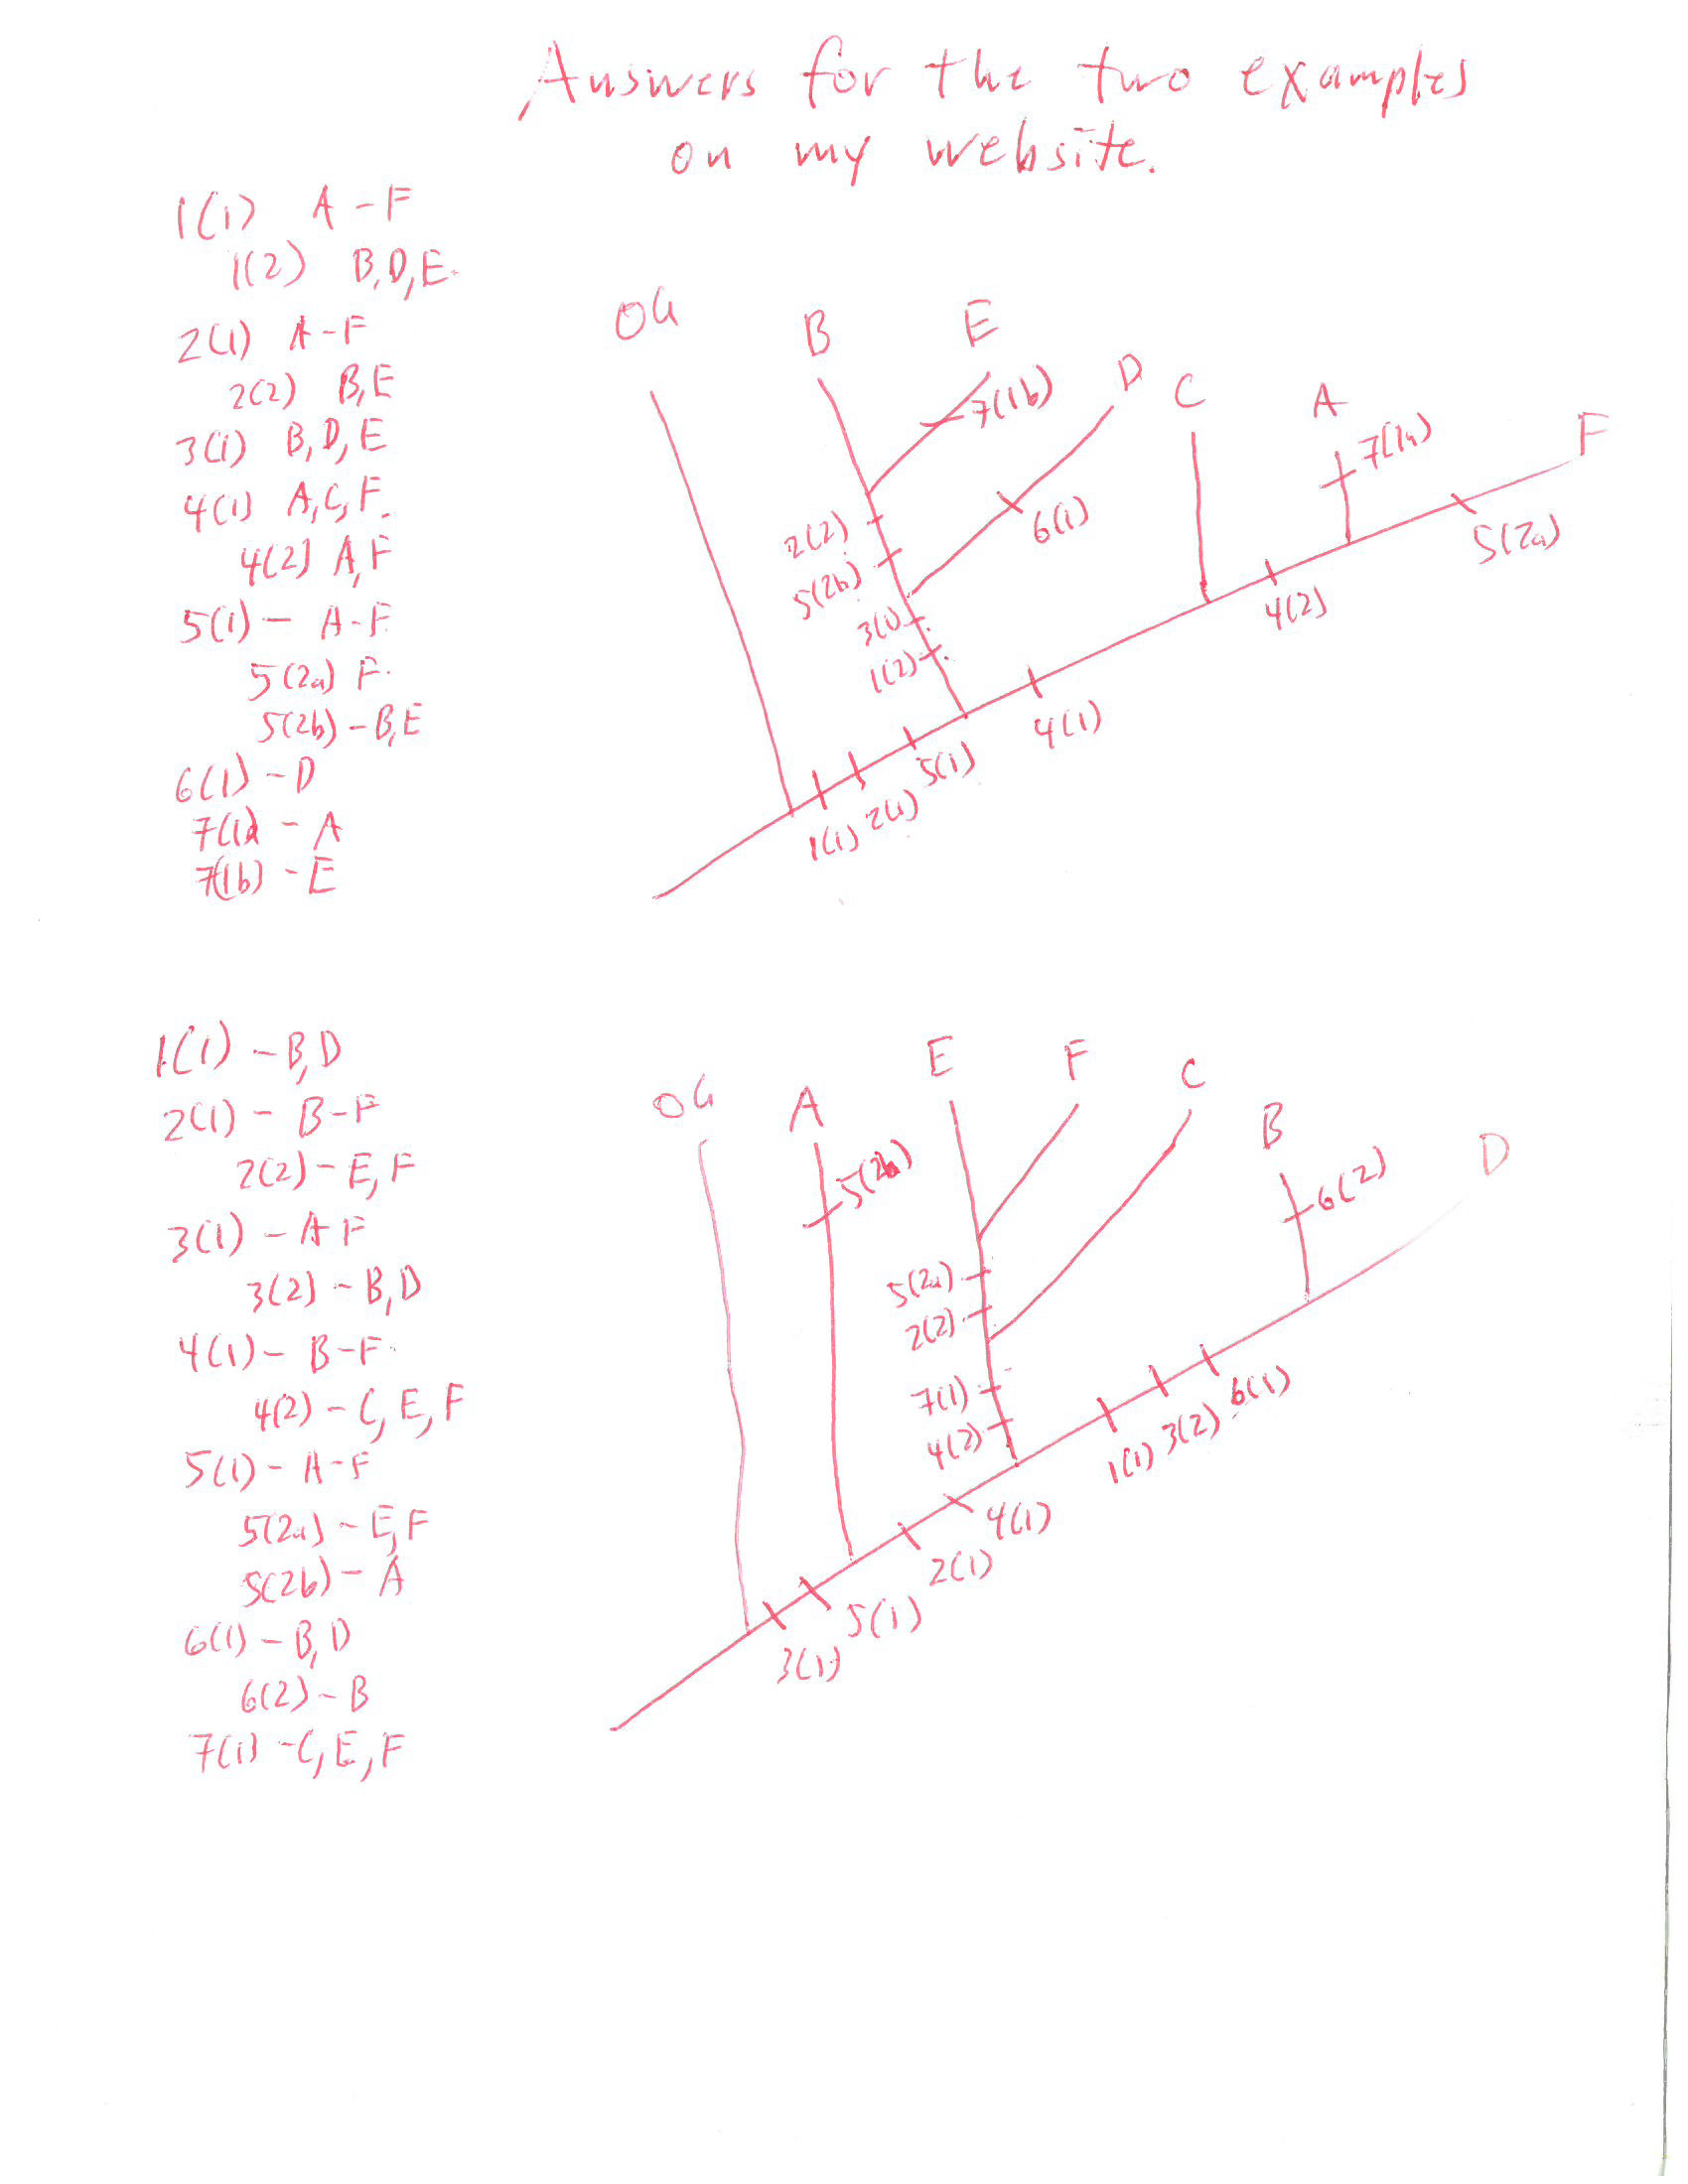 Answers for the two examples
on my website.
1(1) A-F
1(2) B,D,E.
2(1) A-F
2(2) B,E
3(1) B,D,E
4(1) A,C,F.
4(2) A,F
5(1) - A-F
5(2a) F.
5(2b) - B,E
6(1) - D
7(1a - A
7(1b) - E
OG
B
E
D
C
A
F
7(1b)
7(1a)
6(1)
5(2a)
2(2)
5(2b)
3(1)
1(2)
4(2)
4(1)
5(1)
2(1)
1(1)
1(1) - B,D
2(1) - B-F
2(2) - E,F
3(1) - A-F
3(2) - B,D
4(1) - B-F.
4(2) - C,E,F
5(1) - A-F
5(2a) - E,F
5(2b) - A
6(1) - B,D
6(2) - B
7(1) - C,E,F
OG
A
E
F
C
B
D
5(2b)
6(2)
5(2a)
2(2)
7(1)
4(2)
6(1)
3(2)
1(1)
4(1)
2(1)
5(1)
3(1)